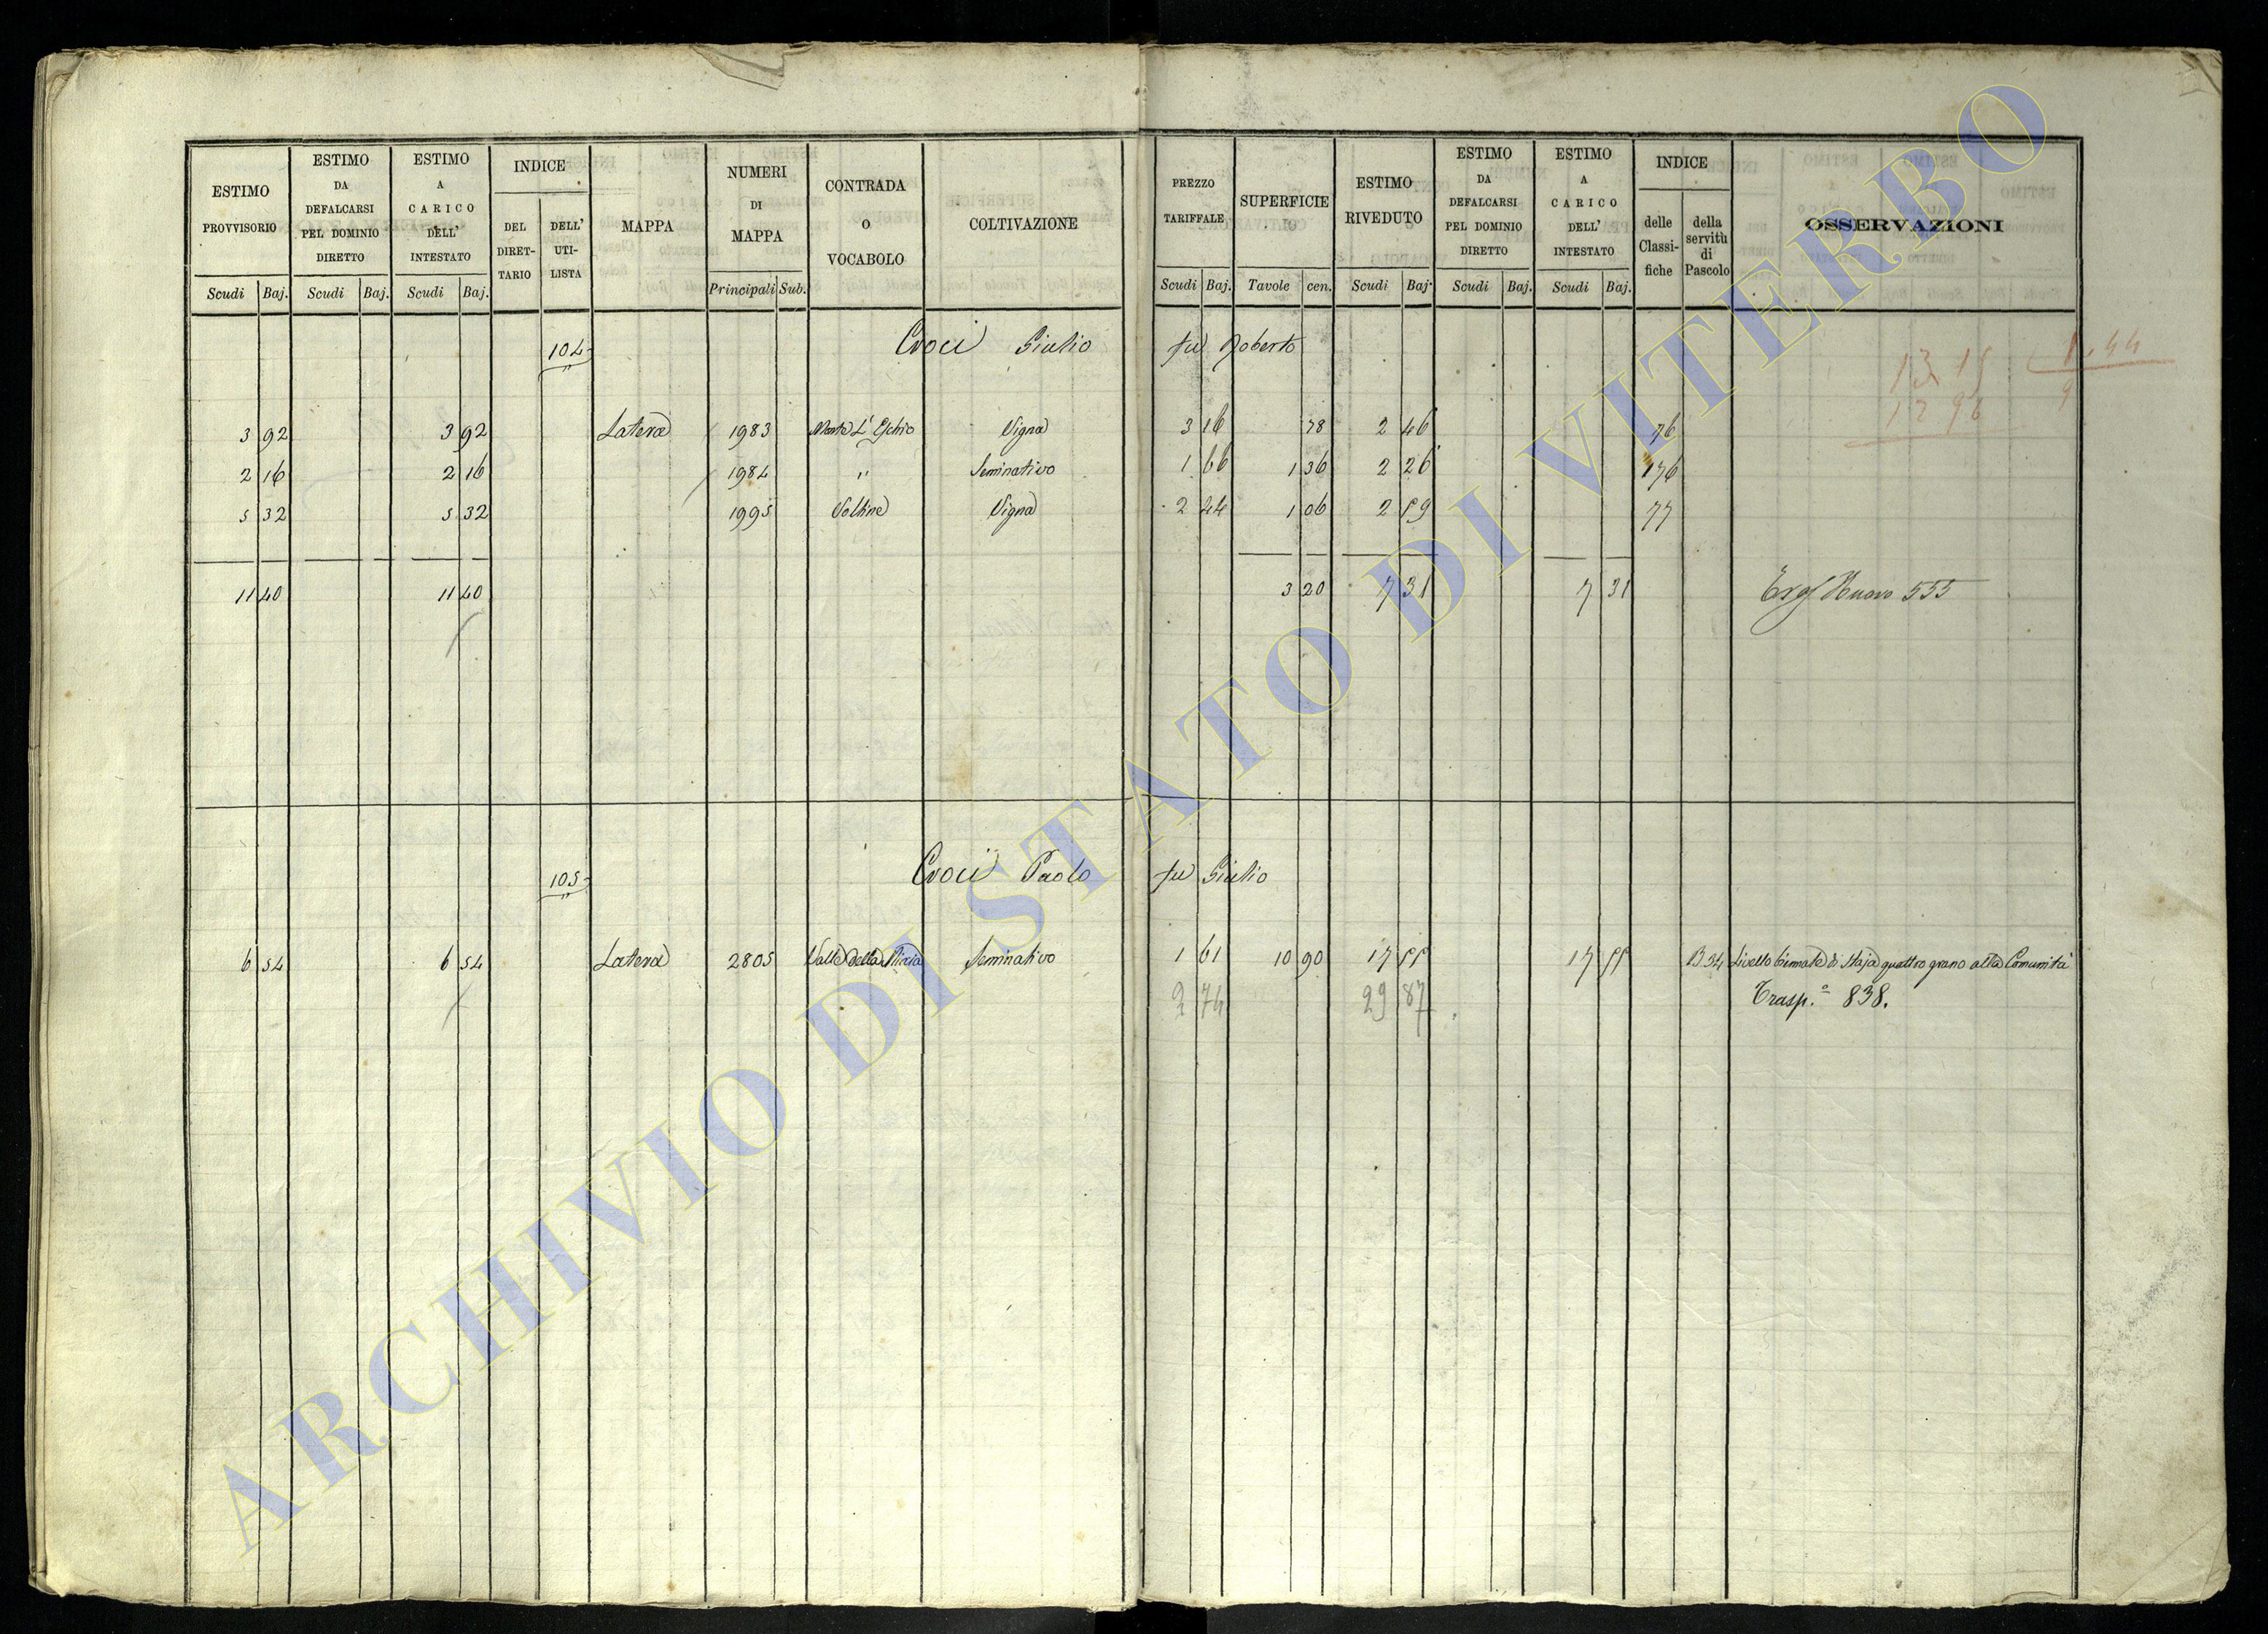 ESTIMO PROVVISORIO
ESTIMO DA DEFALCARSI PEL DOMINIO DIRETTO
ESTIMO A CARICO DELL' INTESTATO
INDICE
DEL DIRETTARIO
DELL' UTILISTA
MAPPA
NUMERI DI MAPPA
CONTRADA O VOCABOLO
COLTIVAZIONE
PREZZO TARIFFALE
SUPERFICIE
ESTIMO RIVEDUTO
ESTIMO DA DEFALCARSI PEL DOMINIO DIRETTO
ESTIMO A CARICO DELL' INTESTATO
INDICE
delle Classifiche
della servitù di Pascolo
OSSERVAZIONI
Scudi Baj. Scudi Baj. Scudi Baj. Principali Sub. Scudi Baj. Tavole cen. Scudi Baj. Scudi Baj. Scudi Baj.
104 Croci Giulio fu Roberto
13 15
12 96
3 92 3 92 Latera 1983 Vigna 3 16 78 2 46 76
2 16 2 16 1984 " Seminativo 1 66 1 36 2 26 176
5 32 5 32 1995 Vigna 2 44 1 06 2 59 77
11 40 11 40 3 20 7 31 7 31 Nuovo 555
105 Croci Paolo fu Giulio
6 54 6 54 Latera 2805 Valle della Seminativo 1 61 10 90 17 55 17 55 B 34 Livello biennale di Staja quattro grano alla Comunità
2 74 29 87 Trasp.º 838.
ARCHIVIO DI STATO DI VITERBO